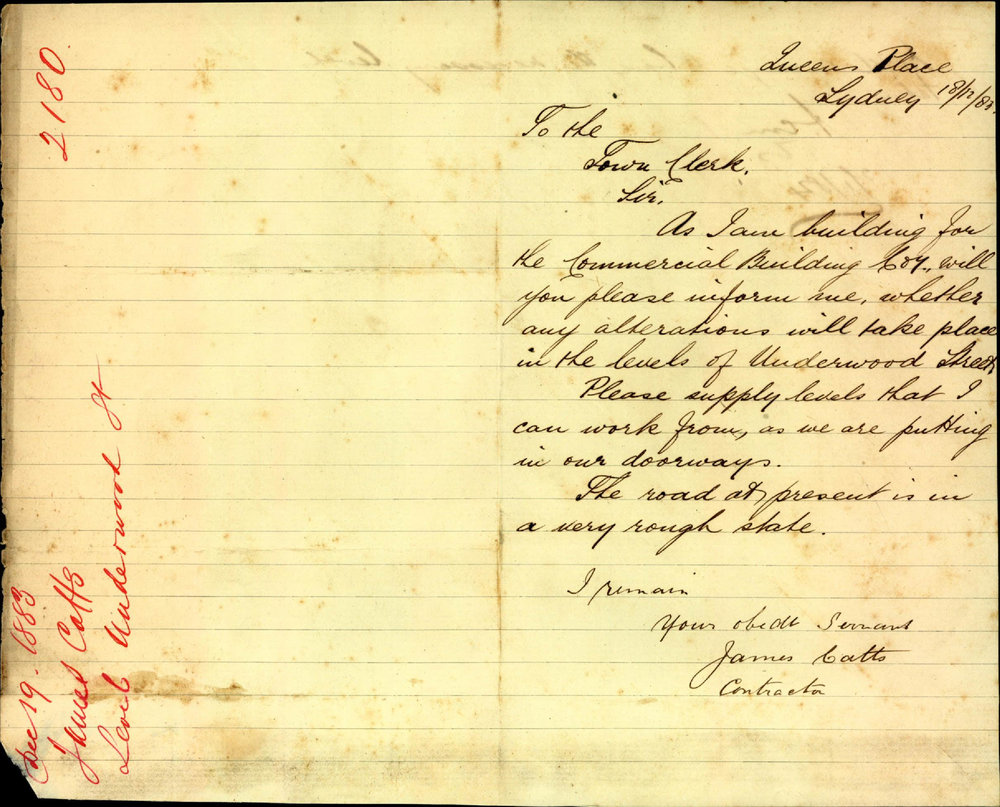 Queens Place
Sydney 18/12/83.
To the
Town Clerk.
Sir,
As I am building for
the Commercial Building Coy., will
you please inform me, whether
any alterations will take place
in the levels of Underwood Street.
Please supply levels that I
can work from, as we are putting
in our doorways.
The road at present is in
a very rough state.
I remain
Your obedt Servant
James Catts
Contractor
2180
Dec 19. 1883
James Catts
Level Underwood St